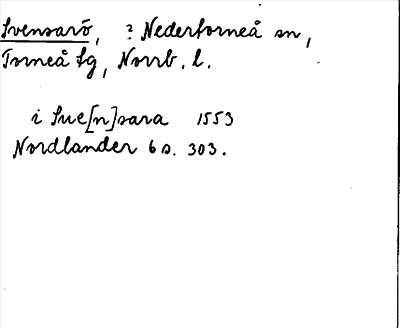 Svensarö, ? Nedertorneå sn,
Torneå tg, Norrb. l.
i Sue[n]sara 1553
Nordlander 6 s. 303.